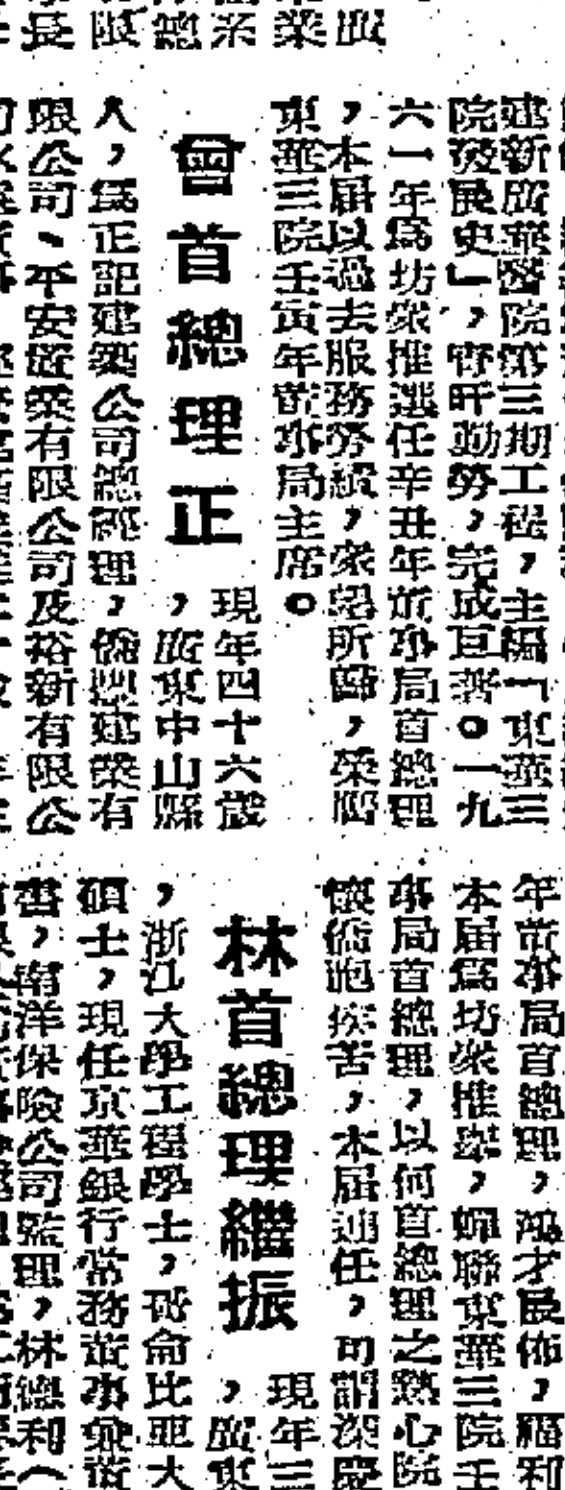 建新廣華醫院第三期工程，主編「東華三
院發展史」，宵旰勤勞，完成巨著。一九
六一年爲坊衆推選任辛丑年董事局首總理
，本屆以過去服務勞績，衆望所歸，榮膺
東華三院壬寅年董事局主席。
曾首總理正
現年四十六歲
，廣東中山縣
人，爲正記建築公司總經理，僑興建業有
限公司、平安置業有限公司及裕新有限公
年董事局首總理，鴻才展佈，福利
本屆爲坊衆推舉，蟬聯東華三院壬
事局首總理，以何首總理之熱心院
懷僑胞疾苦，本屆連任，可謂深慶
林首總理繼振
現年三
，廣東
，浙江大學工程學士，哥侖比亞大
碩士，現任京華銀行常務董事兼董
書，南洋保險公司監理，林德利（